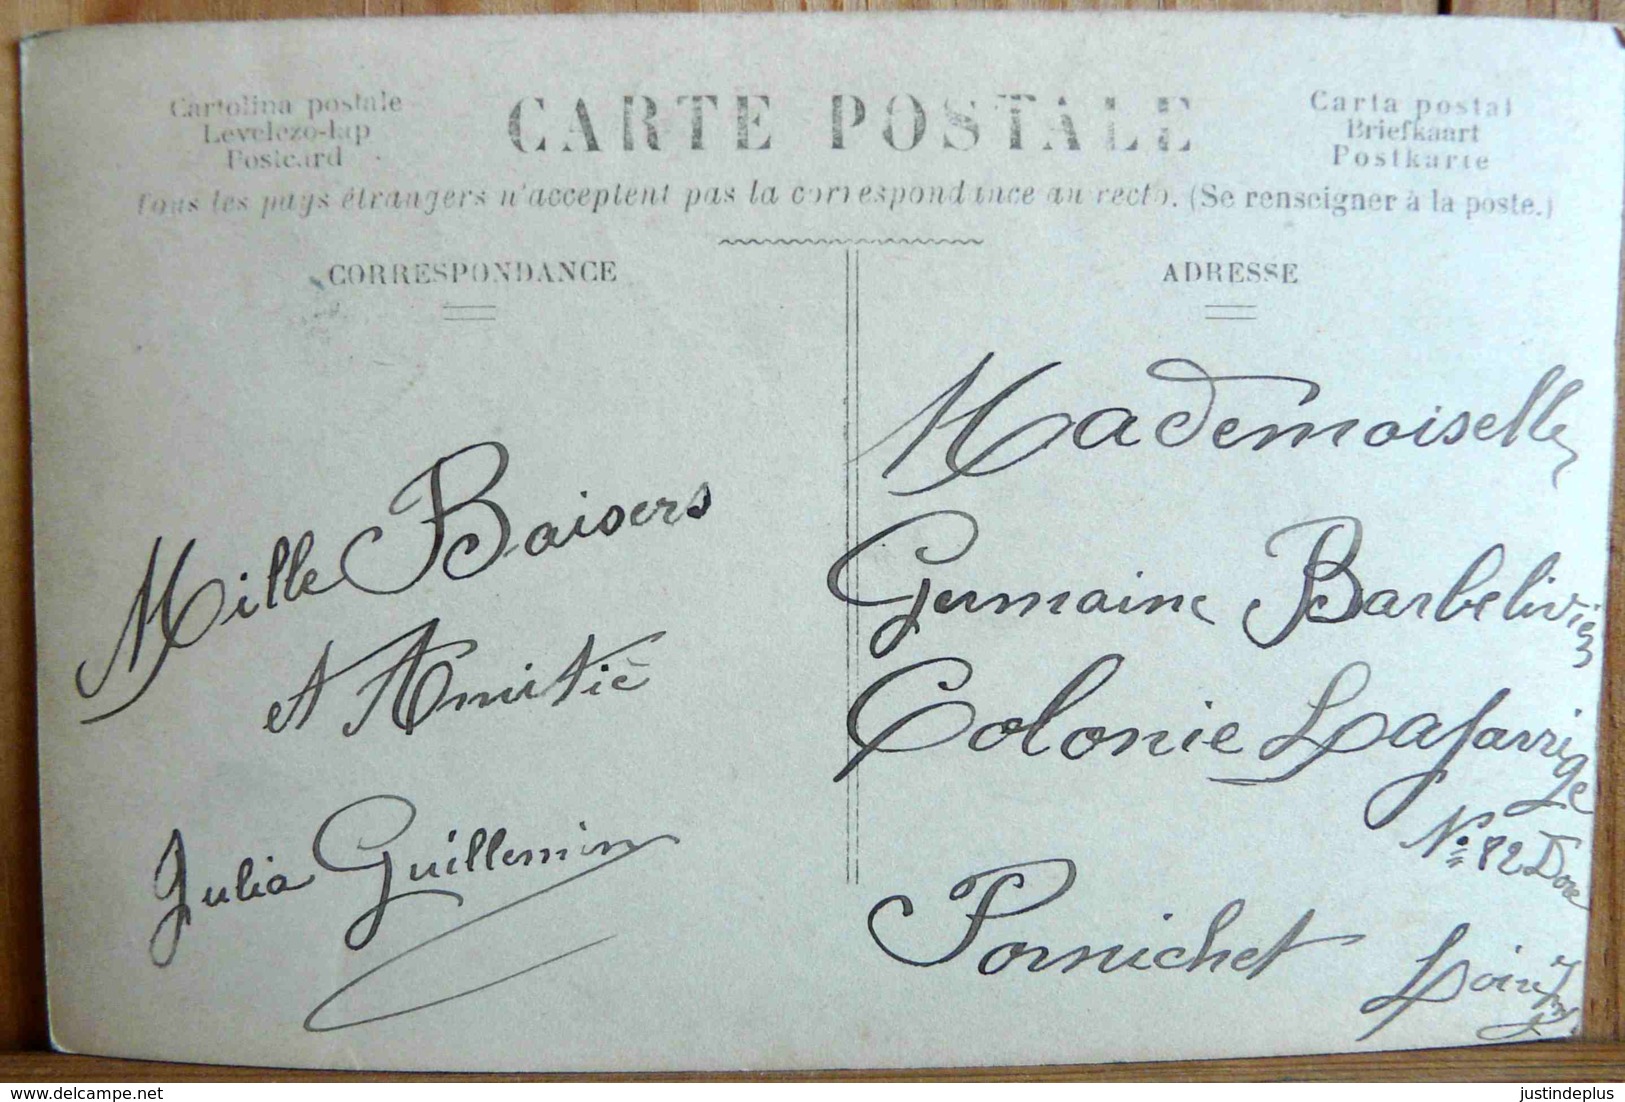 Cartolina postale
Levelezo-lap
Postcard
CARTE POSTALE
Carta postal
Briefkaart
Postkarte
Tous les pays étrangers n'acceptent pas la correspondance au recto. (Se renseigner à la poste.)
CORRESPONDANCE
ADRESSE
Mille Baisers
et Amitiè
Julia Guillemin
Mademoiselle
Germaine Barbelivien
Colonie Lafarrige
No 82
Pornichet
Loire
delcampe.net
justindeplus